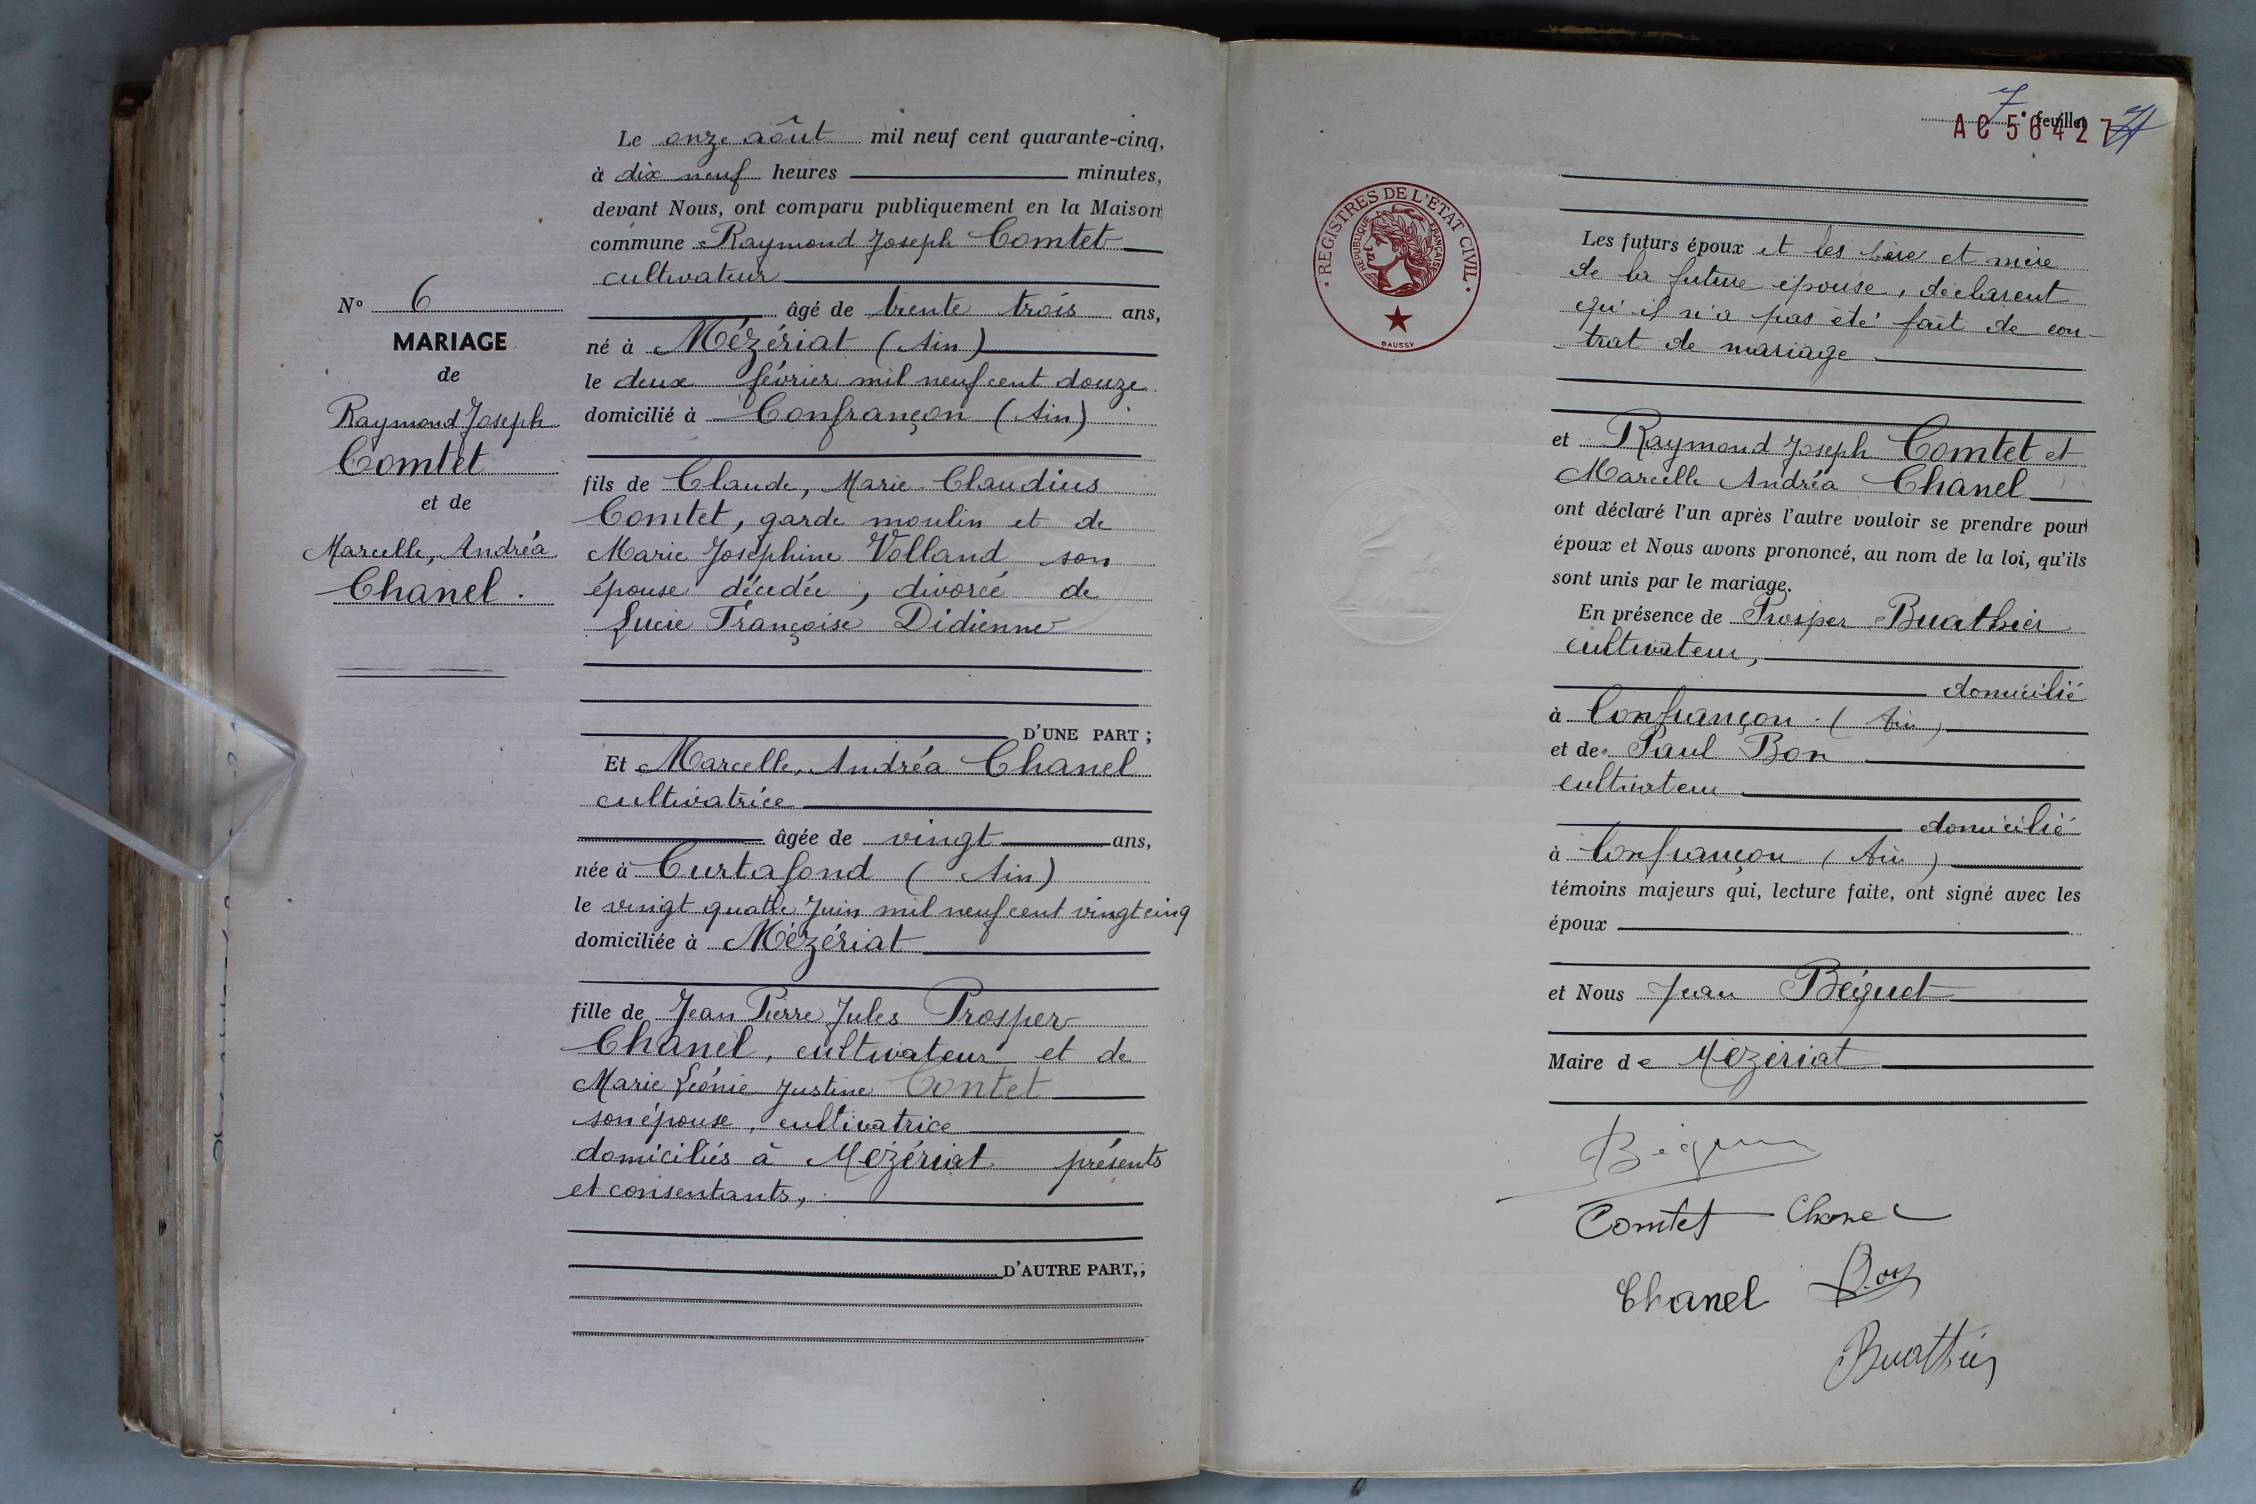 Le onze août mil neuf cent quarante-cinq,
à dix neuf heures minutes,
devant Nous, ont comparu publiquement en la Maison
commune Raymond Joseph Comtet
cultivateur
âgé de trente trois ans,
né à Mézériat (Ain)
le deux février mil neuf cent douze
domicilié à Confrançon (Ain)
fils de Claude, Marie Claudius
Comtet, garde moulin et de
Marie Joséphine Volland son
épouse décédée, divorcé de
Lucie Françoise Didienne
D'UNE PART ;
Et Marcelle, Andréa Chanel
cultivatrice
âgée de vingt ans,
née à Curtafond (Ain)
le vingt quatre Juin mil neuf cent vingt cinq
domiciliée à Mézériat
fille de Jean Pierre Jules Prosper
Chanel, cultivateur et de
Marie Léonie Justine Contet
son épouse, cultivatrice
domiciliés à Mézériat présents
et consentants,
D'AUTRE PART,;
N° 6
MARIAGE
de
Raymond Joseph
Comtet
et de
Marcelle, Andréa
Chanel.
7e feuillet
AC56427
REGISTRES DE L'ÉTAT CIVIL
RÉPUBLIQUE FRANÇAISE
DAUSSY
Les futurs époux et les père et mère
de la future épouse, déclarent
qu'il n'a pas été fait de con-
trat de mariage
et Raymond Joseph Comtet et
Marcelle Andréa Chanel
ont déclaré l'un après l'autre vouloir se prendre pour
époux et Nous avons prononcé, au nom de la loi, qu'ils
sont unis par le mariage.
En présence de Prosper Buathier
cultivateur,
domicilié
à Confrançon (Ain)
et de Paul Bon
cultivateur
domicilié
à Confrançon (Ain)
témoins majeurs qui, lecture faite, ont signé avec les
époux
et Nous Jean Béguet
Maire de Mézériat
Comtet Chanel
Chanel Bon
Buathier